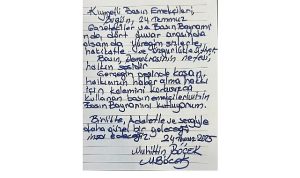 Kıymetli Basın Emekçileri,
Bugün, 24 Temmuz
Gazeteciler ve Basın Bayramı
nda, dört duvar arasında
olsamda yüreğim sizlerle,
hakikatle ve özgürlükledir.
Basın, Demokrasinin nefesi,
halkın sesidir.
Gerçeğin peşinde koşan,
halkımızın haber alma hakkı
için kalemini korkusuzca
kullanan basın emekçilerimizin
Basın Bayramını kutluyorum.
Birlikte, Adaletle ve sevgiyle
daha güzel bir geleceği
inşa edeceğiz. 24 Temmuz 2025
Muhittin BÖCEK
MBöcek